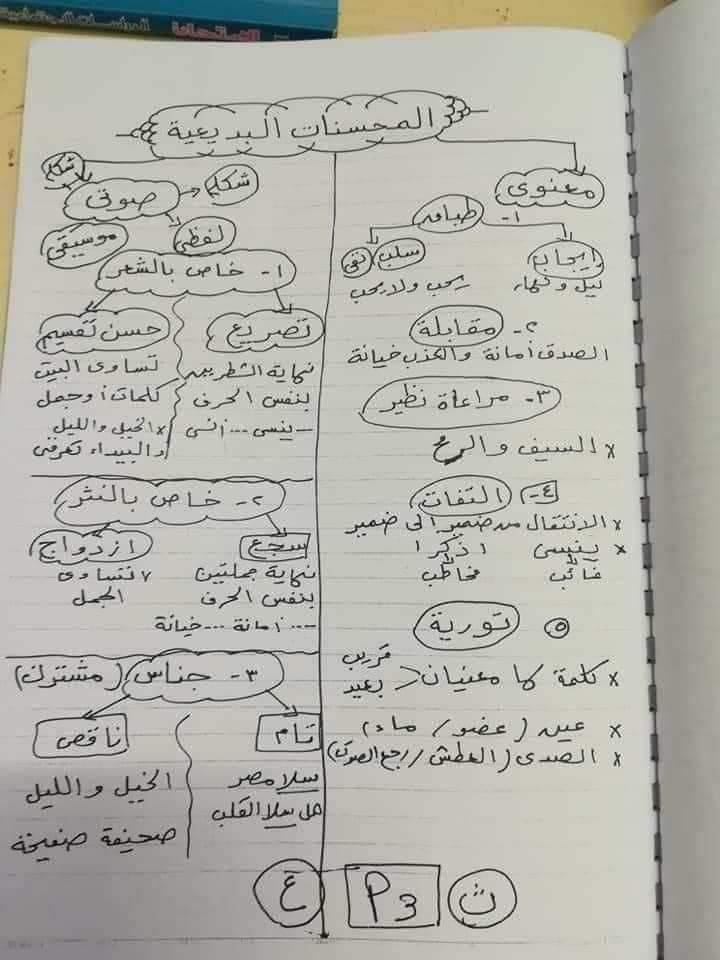 الامتحان الدراسات الاجتماعية
المحسنات البديعية
معنوى
١- طباق
إيجاب
سلب
نفى
ليل ونهار
يحب ولا يحب
٢- مقابلة
الصدق أمانة والكذب خيانة
٣- مراعاة نظير
× السيف والرمح
٤- التفات
× الانتقال من ضمير إلى ضمير
× ينسى اذكرا
غائب مخاطب
٥ تورية
× كلمة لها معنيان قريب
بعيد
× عين (عضو / ماء)
× الصدى (العطش / رجع الصوت)
صوتى
شكلى
شكلى
لفظى
موسيقى
١- خاص بالشعر
تصريع
نهاية الشطرين
بنفس الحرف
- ينسى ... أنسى
حسن تقسيم
تساوى البيت
كلمات أو جمل
× الخيل والليل
والبيداء تعرفنى
٢- خاص بالنثر
سجع
نهاية جملتين
بنفس الحرف
... أمانة ... خيانة
ازدواج
تساوى
الجمل
٣- جناس (مشترك)
تام
سلا مصر
هل سلا القلب
ناقص
الخيل والليل
صحيفة صفيحة
ث P3 ع